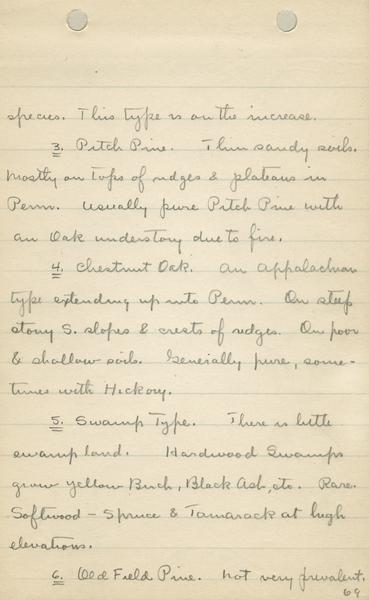 species. This type is on the increase.
3. Pitch Pine. Thin sandy soils.
Mostly on tops of ridges & plateaus in
Penn. Usually pure Pitch Pine with
an Oak understory due to fire.
4. Chestnut Oak. An Appalachian
type extending up into Penn. On steep
stony S. slopes & crests of ridges. On poor
& shallow soils. Generally pure, some-
times with Hickory.
5. Swamp Type. There is little
swamp land. Hardwood Swamps
grow Yellow Birch, Black Ash, etc. Rare.
Softwood - Spruce & Tamarack at high
elevations.
6. Old Field Pine. Not very prevalent.
69